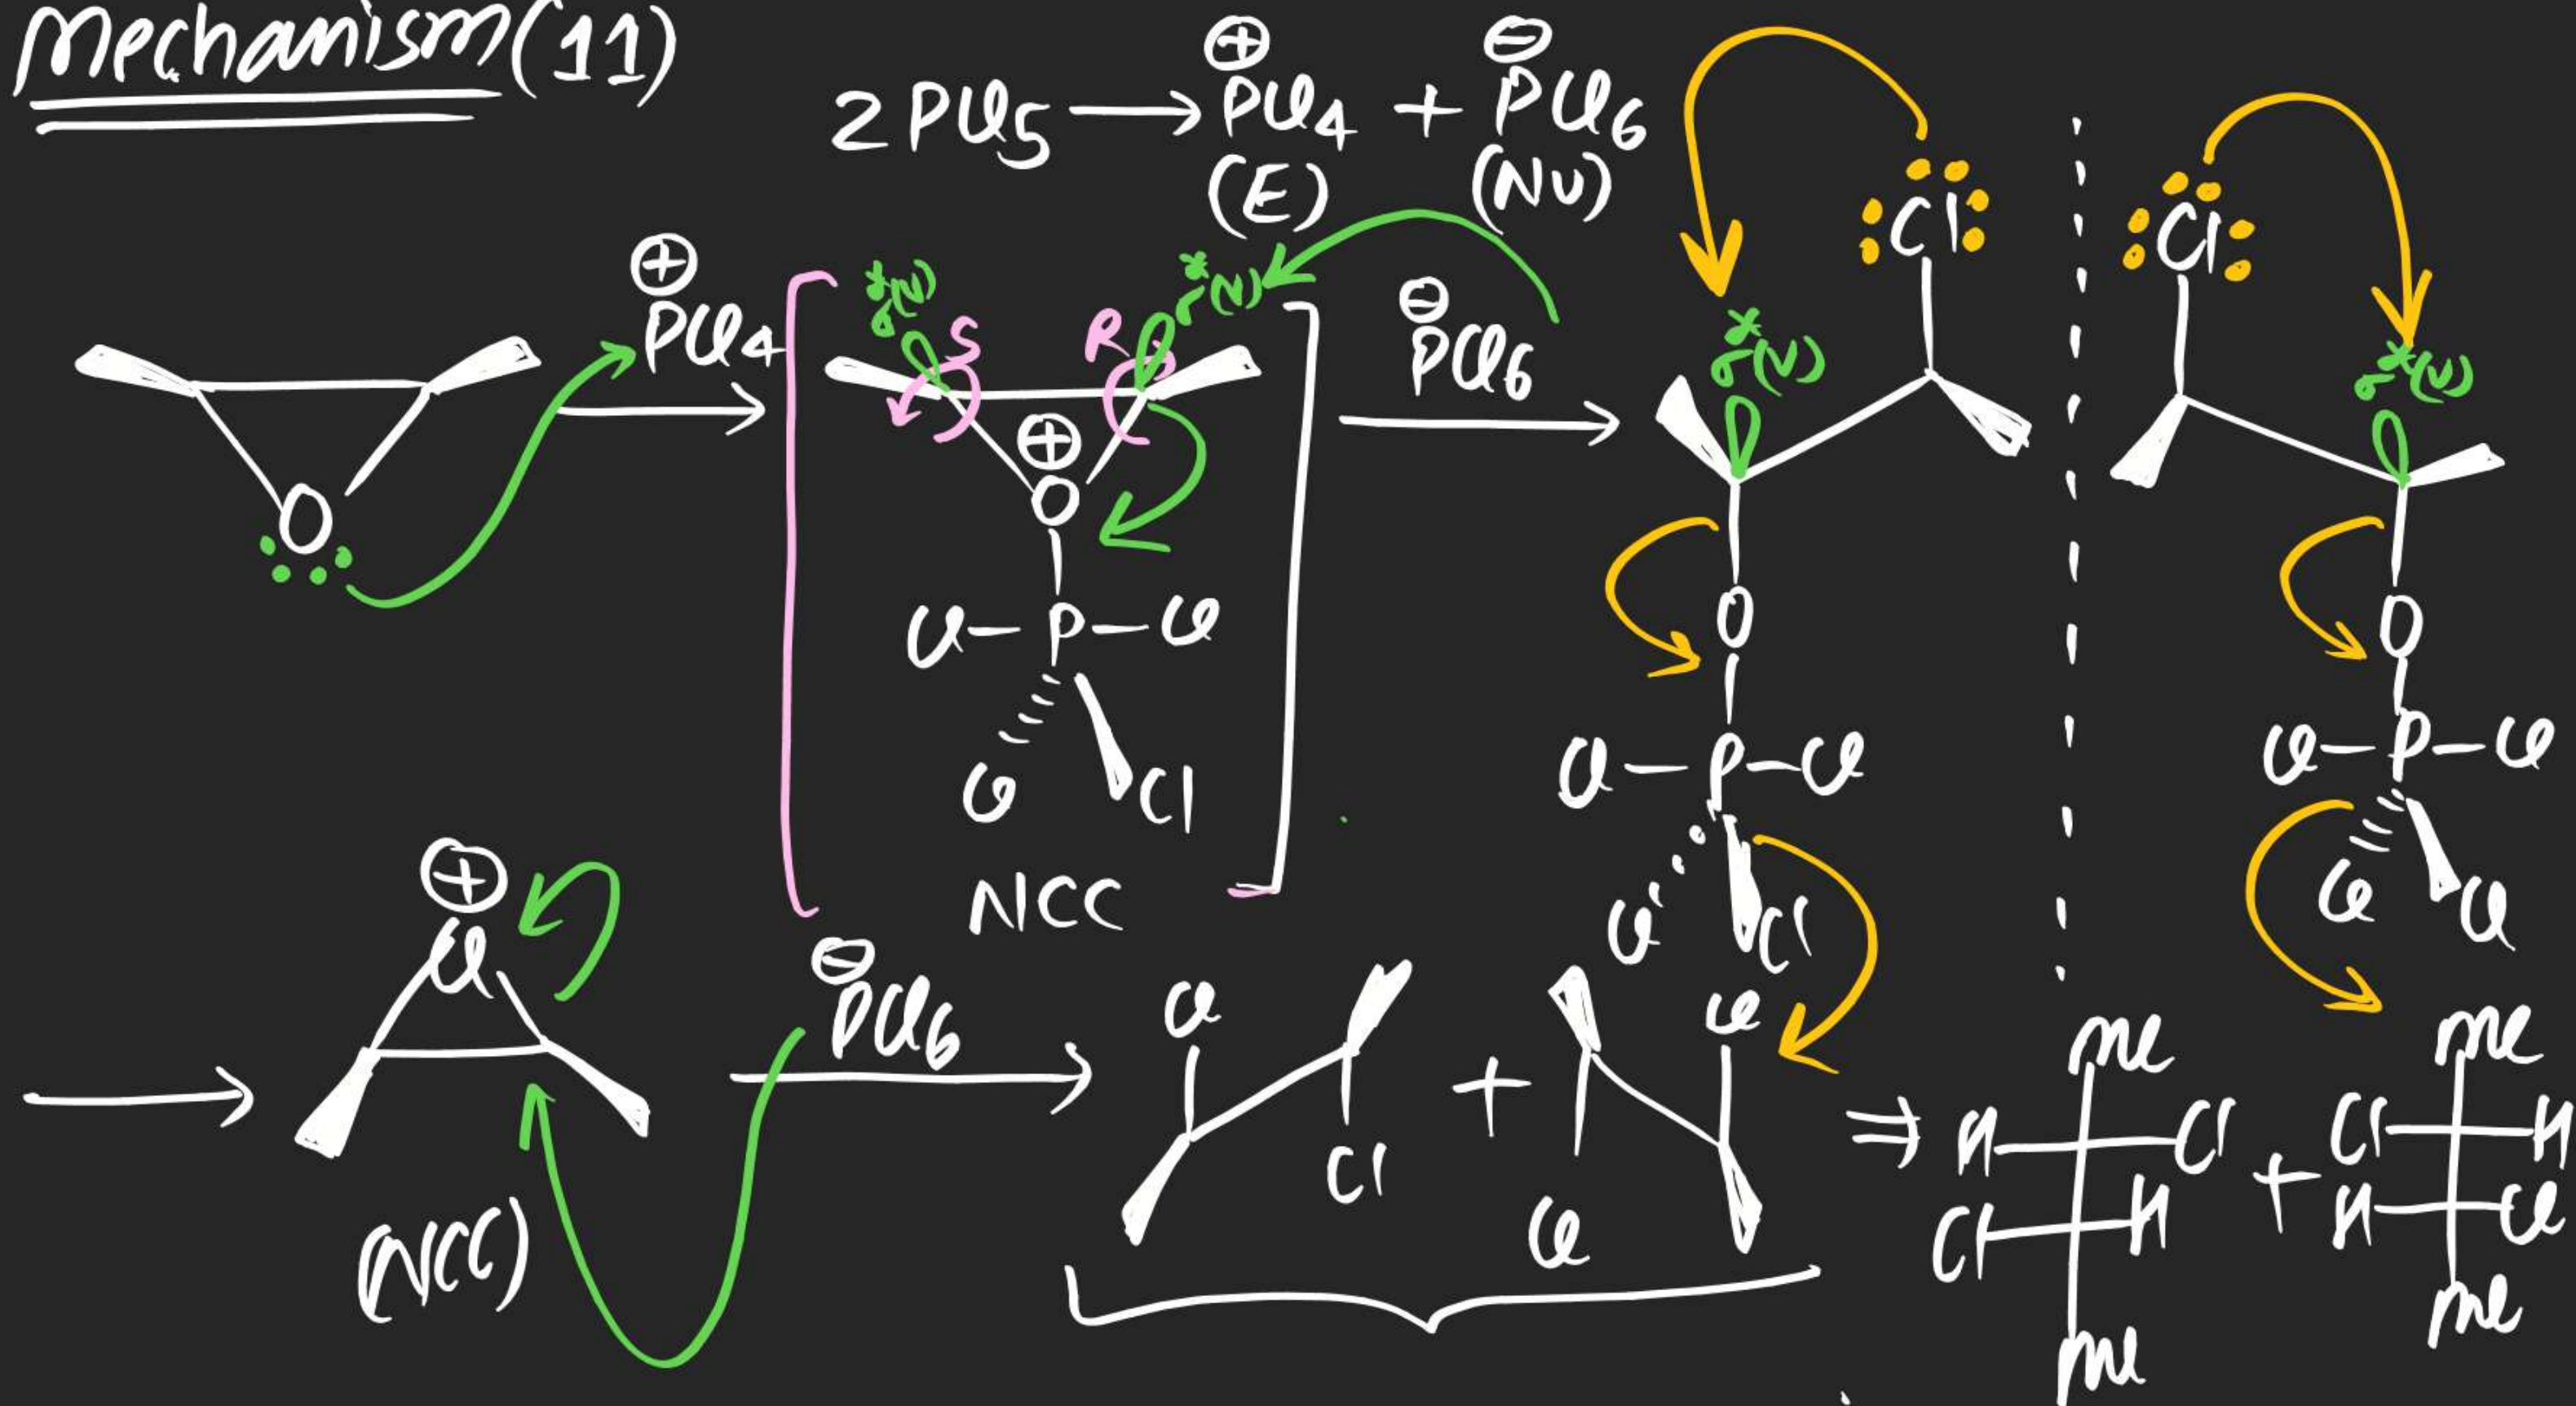 Mechanism (11)
2 PCl5 ⟶ ⊕PCl4 + ⊖PCl6
(E) (NU)
⊕PCl4
σ*(V) σ*(V)
S R
⊖PCl6
O
⊕
O
Cl–P–Cl
Cl Cl
NCC
Cl
σ*(V)
O
Cl–P–Cl
Cl Cl
Cl
σ*(V)
O
Cl–P–Cl
Cl Cl
⊕
Cl
(NCC)
⊖PCl6
Cl
Cl
+
Cl
Cl
⇒
Me
H Cl
Cl H
Me
+
Me
Cl H
H Cl
Me